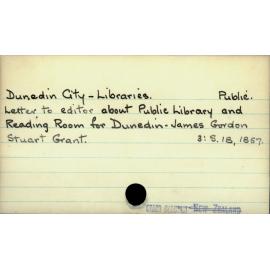 Dunedin City - Libraries. Public.
Letter to editor about Public Library and
Reading Room for Dunedin - James Gordon
Stuart Grant. 3: S. 18, 1857.
NEW ZEALAND